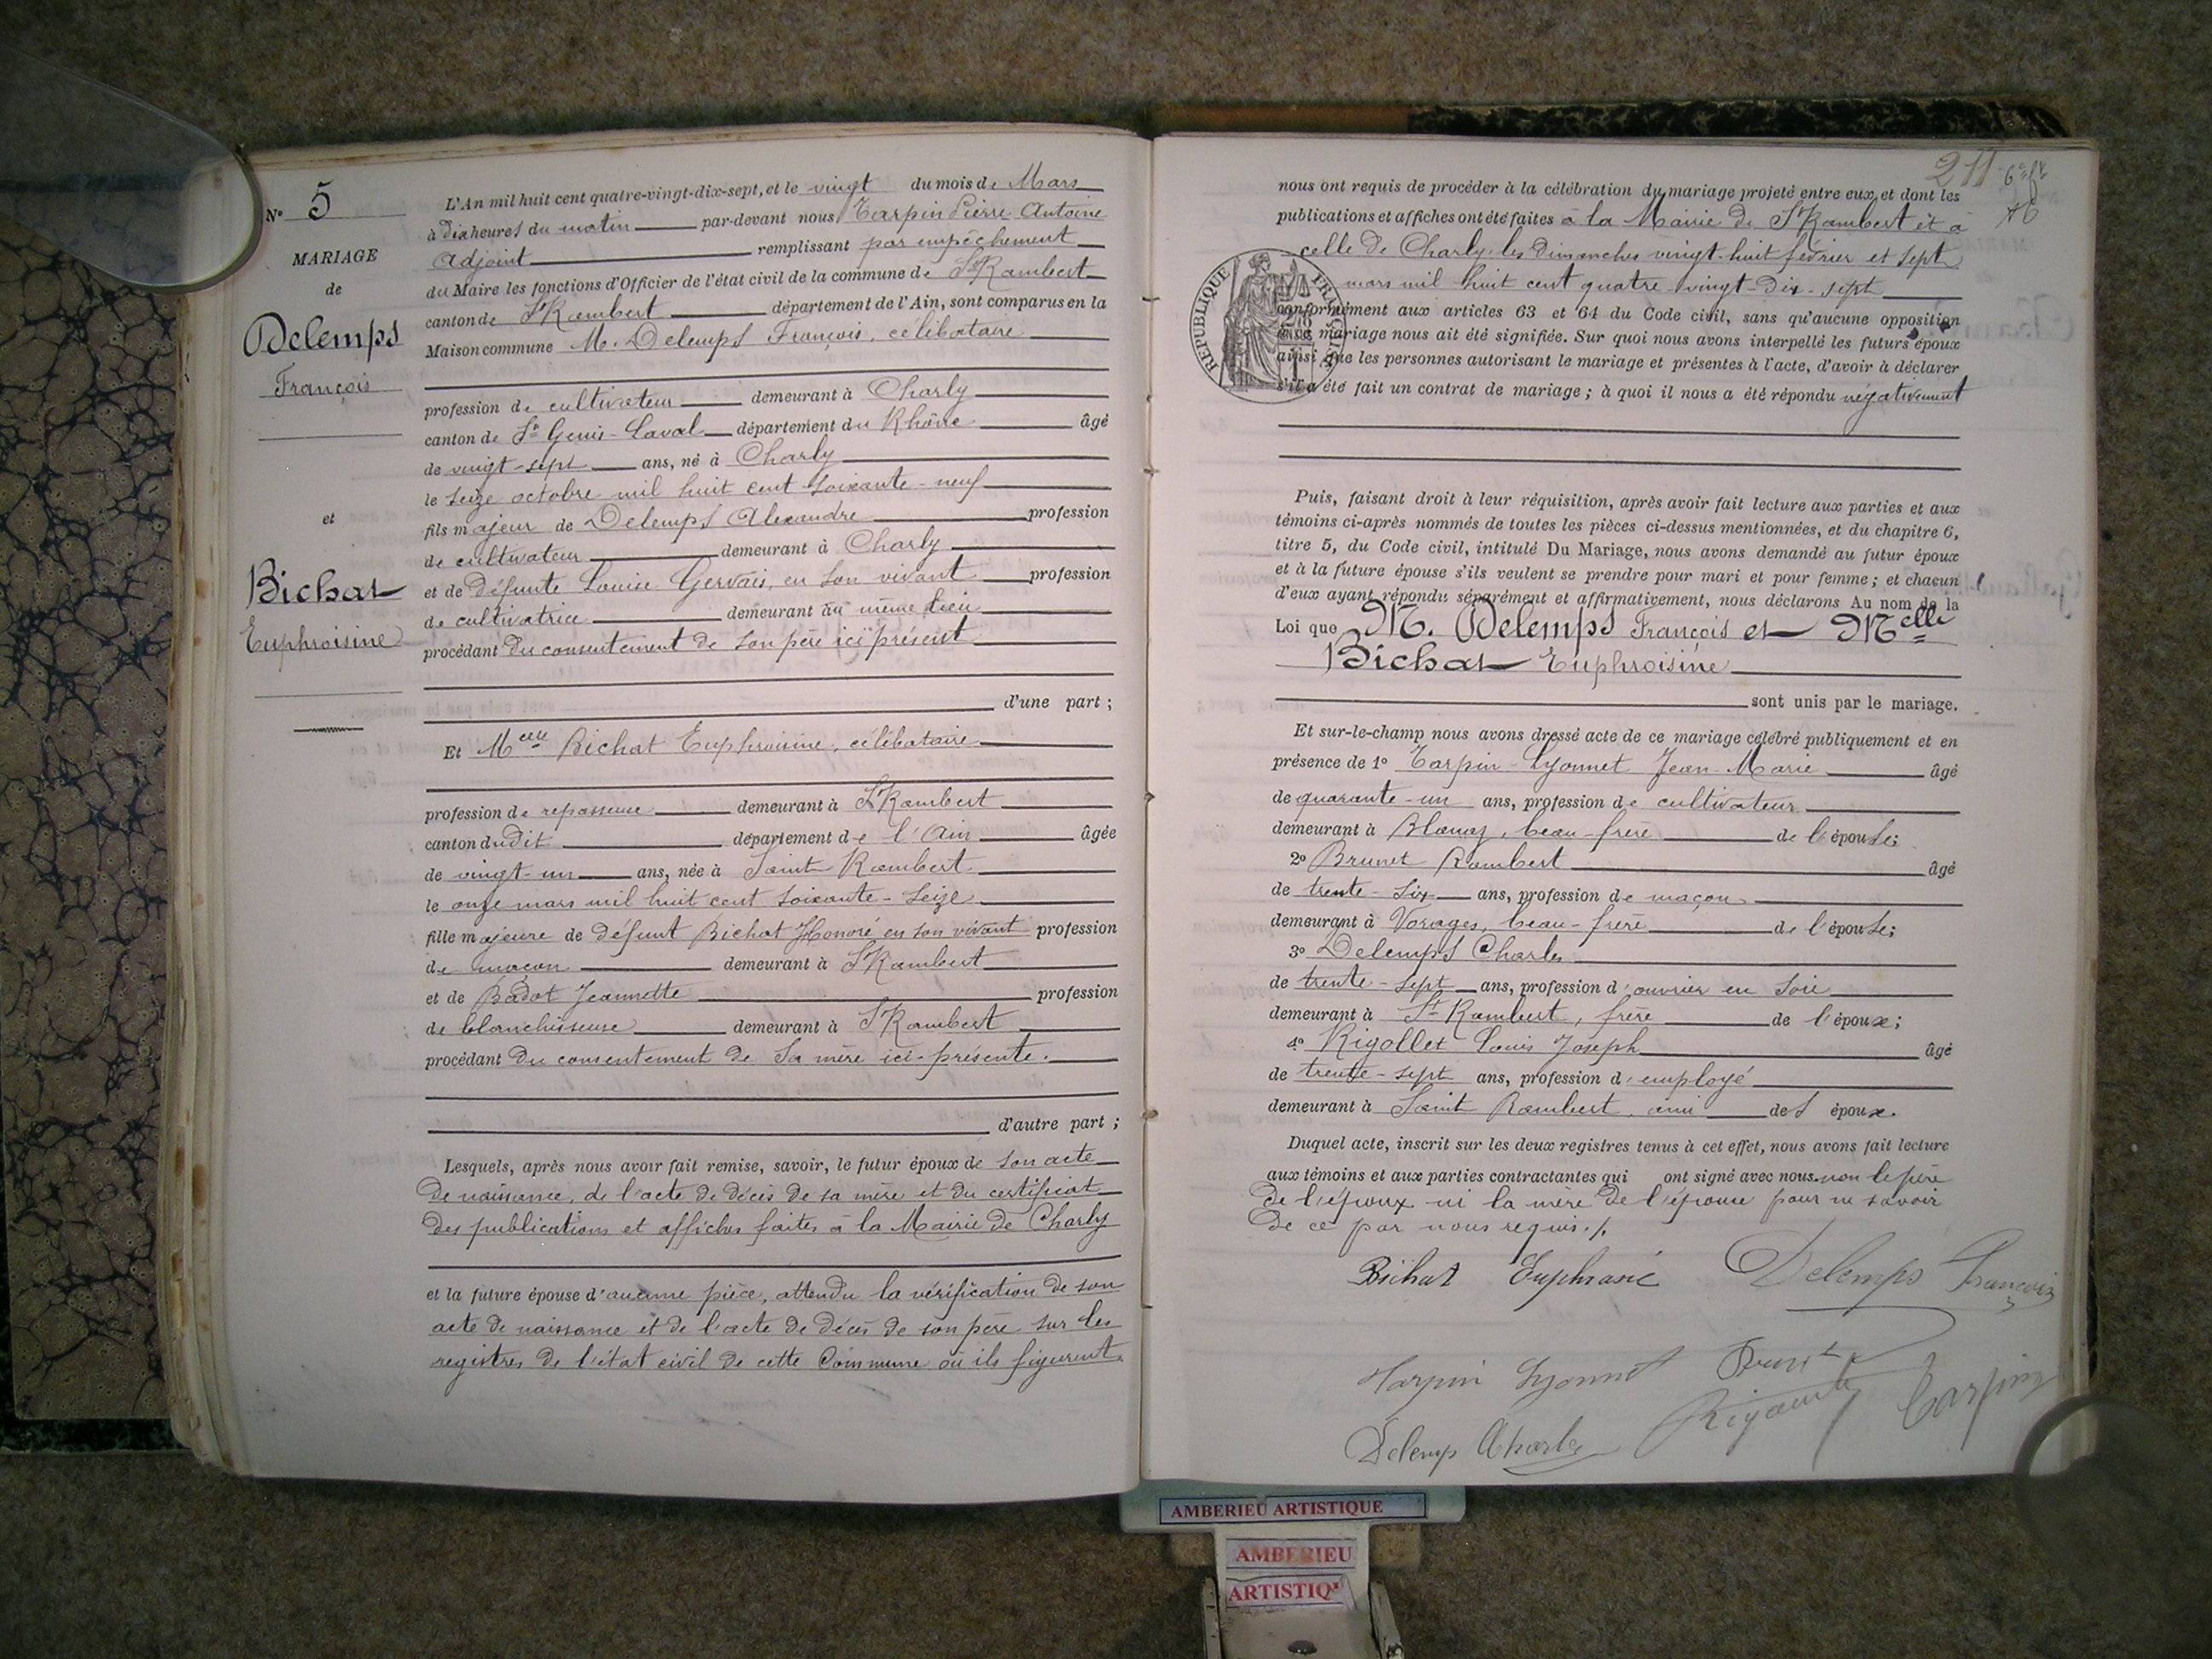 N° 5
MARIAGE
de
Delemps
François
et
Bichat
Euphroisine
L'An mil huit cent quatre-vingt-dix-sept, et le vingt du mois de Mars
à dix heures du matin par-devant nous Tarpin Pierre Antoine
adjoint remplissant par empêchement
du Maire les fonctions d'Officier de l'état civil de la commune de St Rambert
canton de St Rambert département de l'Ain, sont comparus en la
Maison commune M. Delemps François, célibataire
profession de cultivateur demeurant à Charly
canton de St Genis-Laval département du Rhône âgé
de vingt-sept ans, né à Charly
le seize octobre mil huit cent soixante-neuf
fils majeur de Delemps Alexandre profession
de cultivateur demeurant à Charly
et de défunte Louise Gervais, en son vivant profession
de cultivatrice demeurant au même lieu
procédant du consentement de son père ici présent
d'une part ;
Et Melle Bichat Euphroisine, célibataire
profession de repasseuse demeurant à St Rambert
canton dudit département de l'Ain âgée
de vingt-un ans, née à Saint Rambert
le onze mars mil huit cent soixante-seize
fille majeure de défunt Bichat Honoré en son vivant profession
de maçon demeurant à St Rambert
et de Badot Jeannette profession
de blanchisseuse demeurant à St Rambert
procédant du consentement de sa mère ici-présente.
d'autre part ;
Lesquels, après nous avoir fait remise, savoir, le futur époux de son acte
de naissance, de l'acte de décès de sa mère et du certificat
des publications et affiches faites à la Mairie de Charly
et la future épouse d'aucune pièce, attendu la vérification de son
acte de naissance et de l'acte de décès de son père sur les
registres de l'état civil de cette Commune où ils figurent.
211
nous ont requis de procéder à la célébration du mariage projeté entre eux, et dont les
publications et affiches ont été faites à la Mairie de St Rambert et à
celle de Charly les dimanches vingt-huit février et sept
mars mil huit cent quatre-vingt-dix-sept
conformément aux articles 63 et 64 du Code civil, sans qu'aucune opposition
à ce mariage nous ait été signifiée. Sur quoi nous avons interpellé les futurs époux
ainsi que les personnes autorisant le mariage et présentes à l'acte, d'avoir à déclarer
s'il a été fait un contrat de mariage ; à quoi il nous a été répondu négativement
RÉPUBLIQUE FRANÇAISE
Puis, faisant droit à leur réquisition, après avoir fait lecture aux parties et aux
témoins ci-après nommés de toutes les pièces ci-dessus mentionnées, et du chapitre 6,
titre 5, du Code civil, intitulé Du Mariage, nous avons demandé au futur époux
et à la future épouse s'ils veulent se prendre pour mari et pour femme ; et chacun
d'eux ayant répondu séparément et affirmativement, nous déclarons Au nom de la
Loi que M. Delemps François et Melle
Bichat Euphroisine
sont unis par le mariage.
Et sur-le-champ nous avons dressé acte de ce mariage célébré publiquement et en
présence de 1° Tarpin-Lyonnet Jean-Marie âgé
de quarante-un ans, profession de cultivateur
demeurant à Blanaz, beau-frère de l'épouse ;
2° Brunet Rambert âgé
de trente-six ans, profession de maçon
demeurant à Vorages, beau-frère de l'épouse ;
3° Delemps Charles
de trente-sept ans, profession d'ouvrier en soie
demeurant à St Rambert, frère de l'époux ;
4° Rigollet Louis Joseph âgé
de trente-sept ans, profession d'employé
demeurant à Saint Rambert, ami des époux.
Duquel acte, inscrit sur les deux registres tenus à cet effet, nous avons fait lecture
aux témoins et aux parties contractantes qui ont signé avec nous non le père
de l'époux ni la mère de l'épouse pour ne savoir
de ce par nous requis ./.
Bichat Euphrasie Delemps François
Tarpin Lyonnet Brunet
Delemp Charles Tarpin
AMBERIEU ARTISTIQUE
AMBERIEU
ARTISTIQ